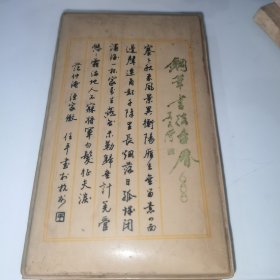 鋼筆書法台曆
塞下秋来風景異衡陽雁去無留意四面
邊聲連角起千嶂裏長烟落日孤城閉
濁酒一杯家萬里燕然未勒歸無計羌管
悠悠霜滿地人不寐將軍白髮征夫淚
范仲淹漁家傲 任平書於杭州